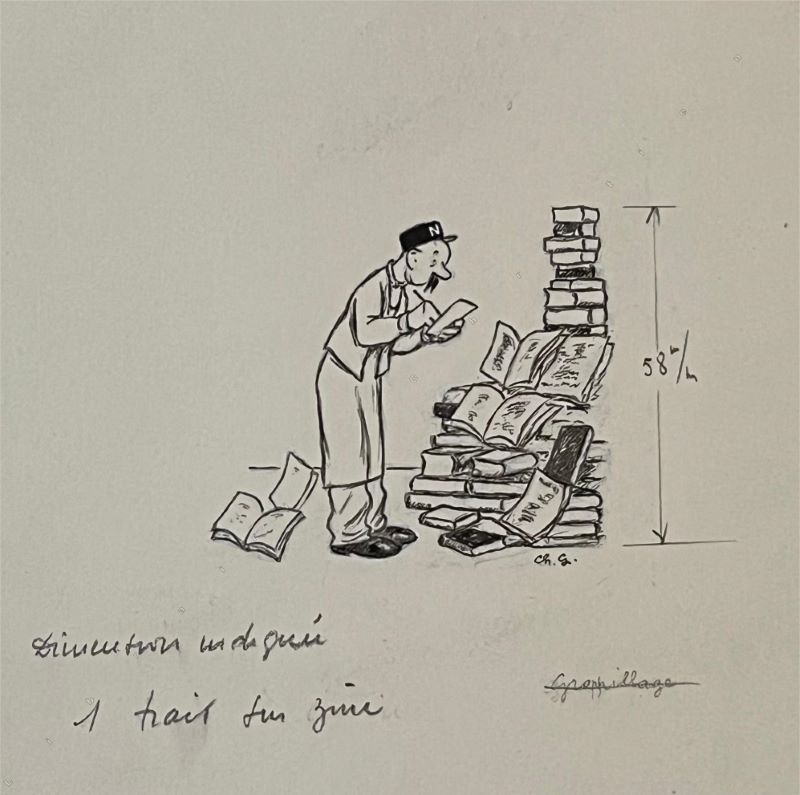 N
58 m/m
Ch. G.
Dimension indiquée
Graphillage
1 trait sur zinc